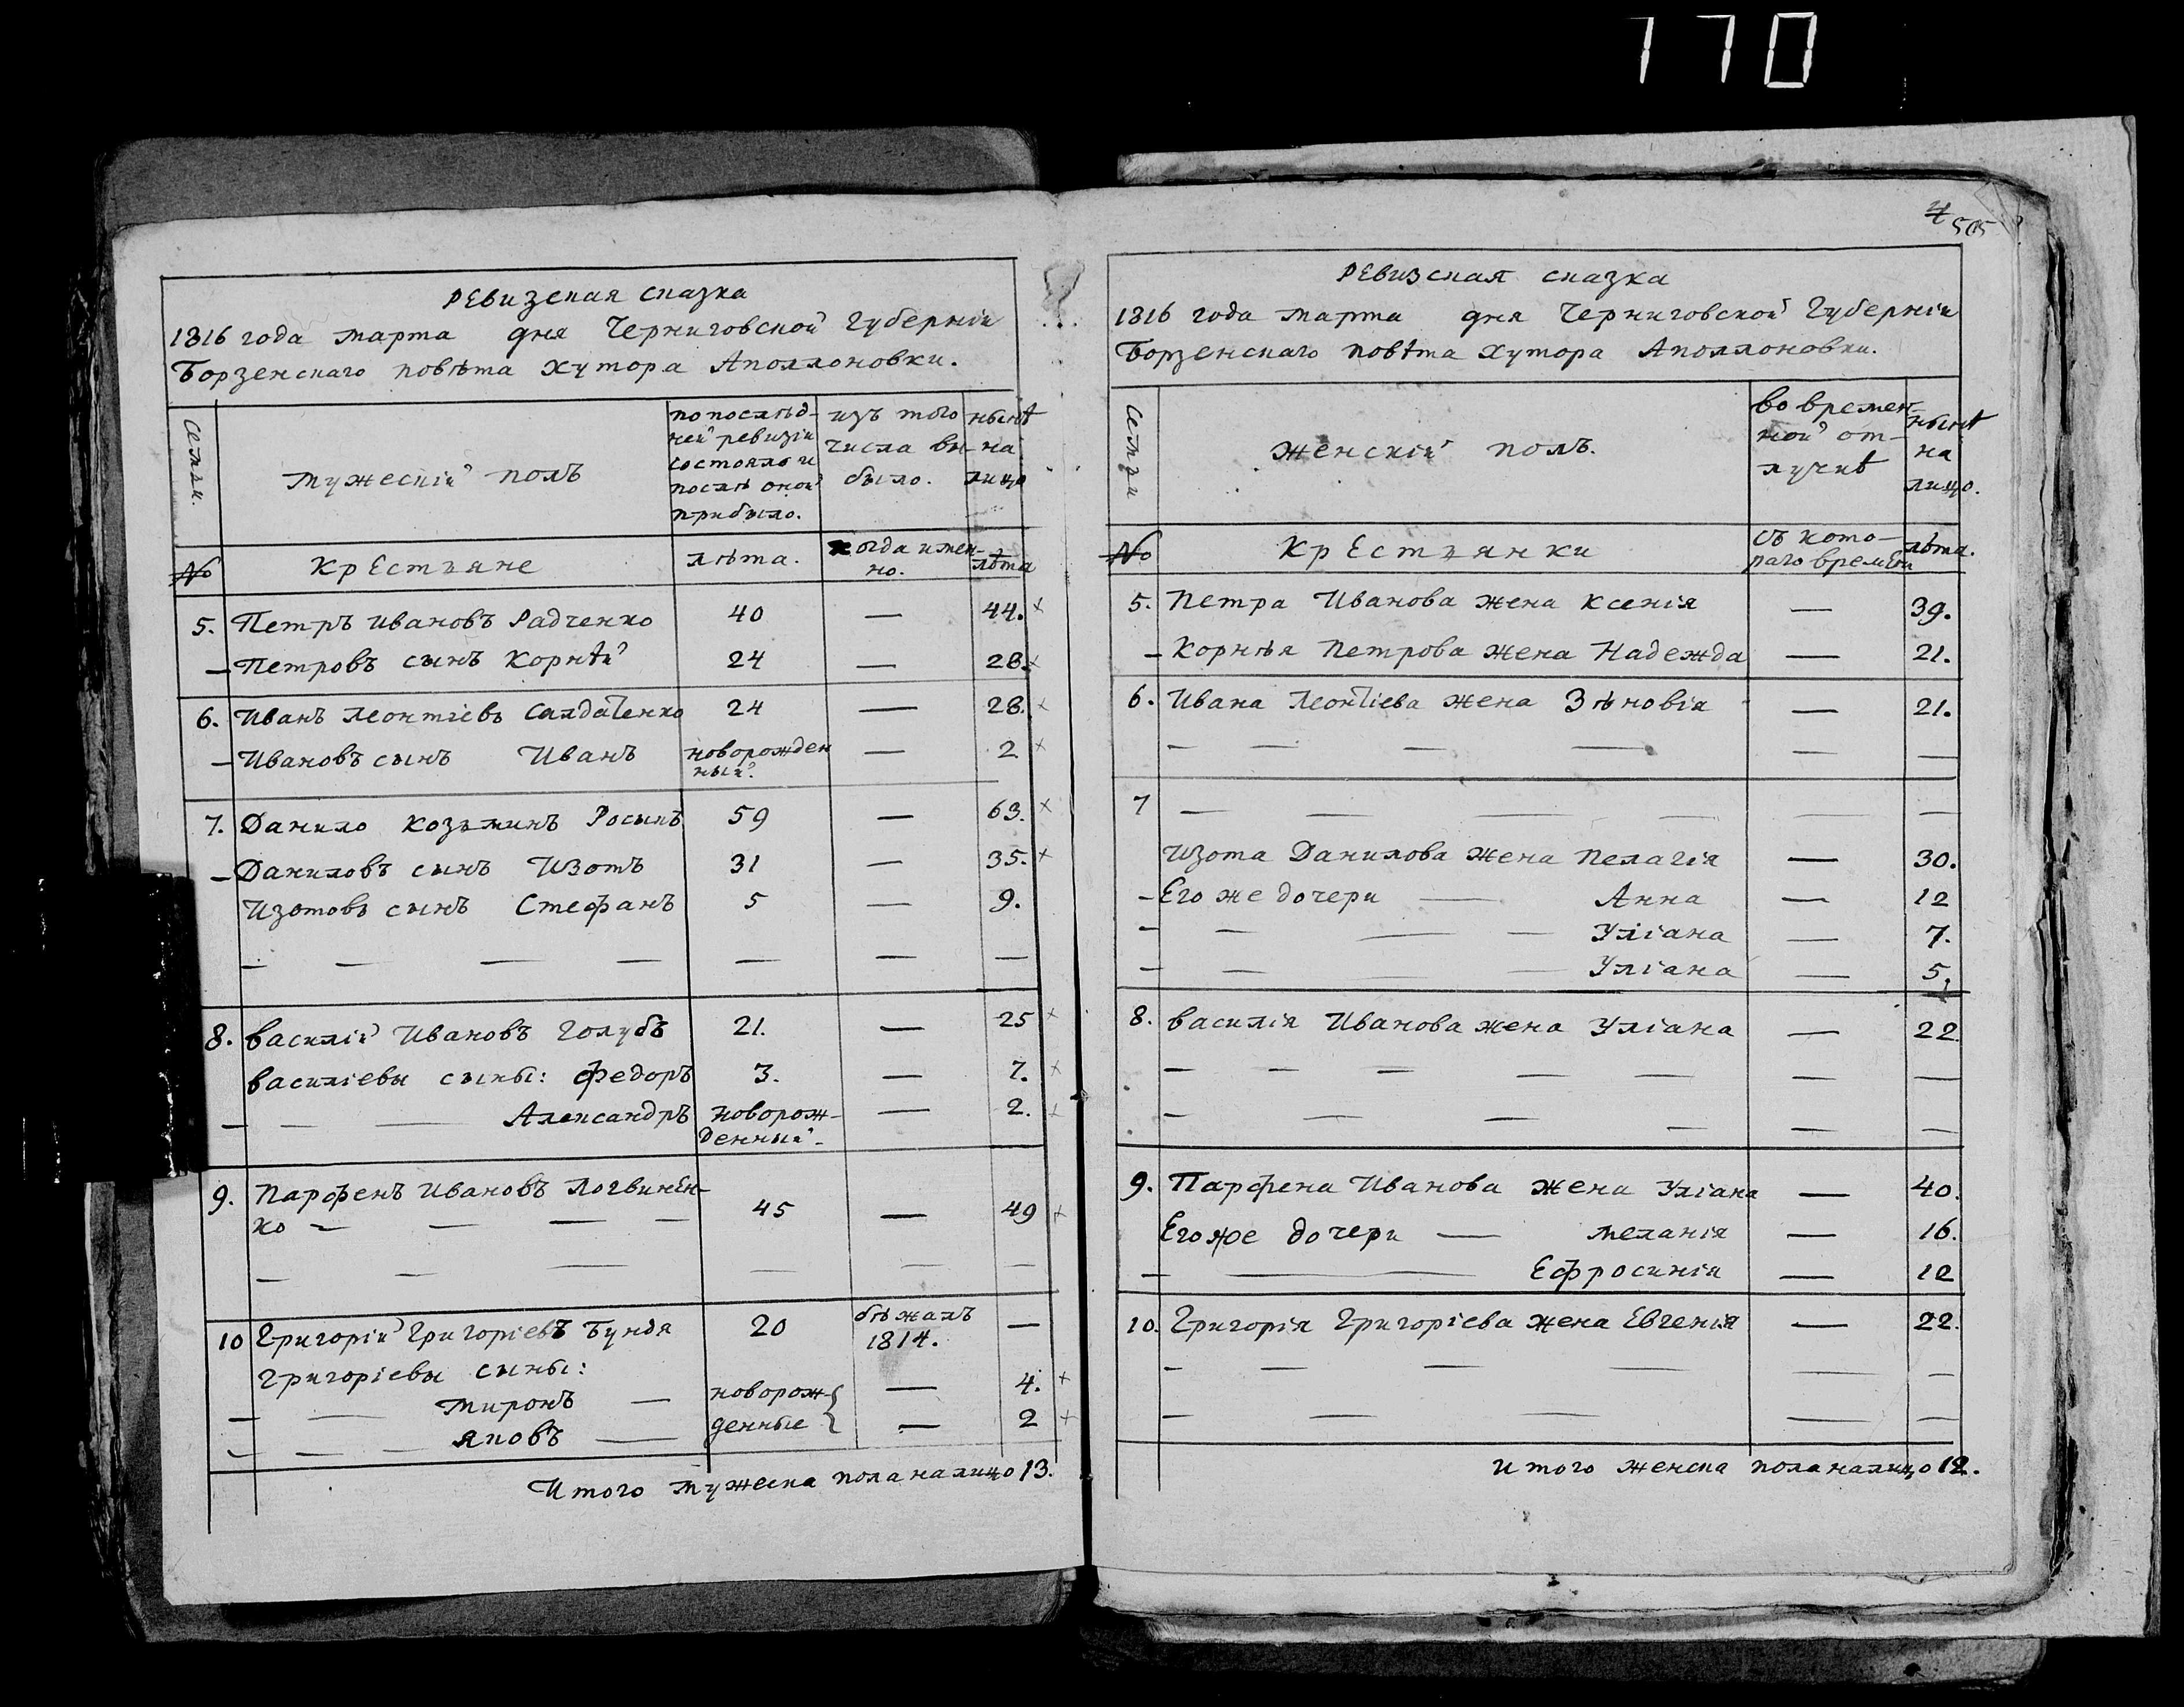 770
4 505
Ревизская сказка
1816 года марта дня Черниговской Губерніи
Борзенскаго повѣта хутора Аполлоновки.
Семьи.
мужескій полъ
по послѣд-
ней ревизіи
состояло и
послѣ оной
прибыло.
изъ того
числа вы-
было.
нынѣ
на
лицо
№
Крестьяне
лѣта.
когда имен-
но.
лѣта
5. Петръ Ивановъ Радченко 40 — 44. ×
— Петровъ сынъ Корнѣй 24 — 28. ×
6. Иванъ Леонтіевъ Салдатенко 24 — 28. ×
— Ивановъ сынъ Иванъ новорожден — 2 ×
ный.
7. Данило Козьминъ Росынъ 59 — 63. ×
— Даниловъ сынъ Изотъ 31 — 35. ×
Изотовъ сынъ Стефанъ 5 — 9.
— — — — — — —
8. Василій Ивановъ Голубъ 21. — 25 ×
Василіевы сыны: Федоръ 3. — 7. ×
— — — Александръ новорож- — 2. ×
денный.
9. Парфенъ Ивановъ Логвинен-
ко — — — — 45 — 49 ×
— — — — — —
10 Григорій Григоріевъ Бундя 20 бѣжалъ —
1814.
Григоріевы сыны:
— — Миронъ — новорож- — 4. ×
— — — Яковъ — денные — 2 ×
Итого мужеска пола налицо 13.
Ревизская сказка
1816 года марта дня Черниговской Губерніи
Борзенскаго повѣта хутора Аполлоновки.
Семьи
женскій полъ.
во времен-
ной от-
лучкѣ
нынѣ
на
лицо.
№
Крестьянки
съ кото-
раго времени
лѣта.
5. Петра Иванова жена Ксенія — 39.
— Корнѣя Петрова жена Надежда — 21.
6. Ивана Леонтіева жена Зѣновія — 21.
— — — — — —
7 — — — — — —
Изота Данилова жена Пелагія — 30.
— Его же дочери — Анна — 12
— — — — Уліана — 7.
— — — Уліана — 5.
8. Василія Иванова жена Уліана — 22.
— — — — — — —
— — — — — —
9. Парфена Иванова жена Уліана — 40.
Его же дочери — Меланія — 16.
— — Ефросинія — 12
10. Григорія Григоріева жена Евгенія — 22.
— — — — — —
— — — — —
Итого женска пола налицо 12.